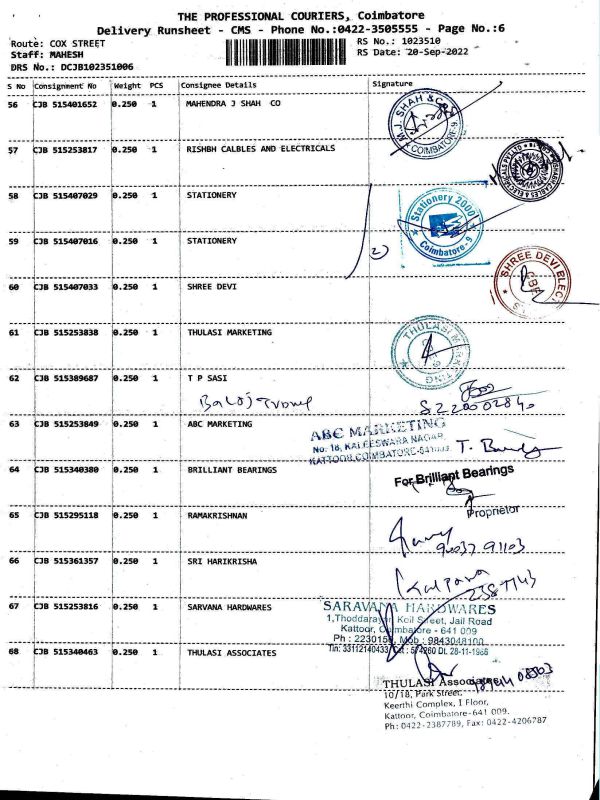 THE PROFESSIONAL COURIERS, Coimbatore
Delivery Runsheet - CMS - Phone No.:0422-3505555 - Page No.:6
Route: COX STREET RS No.: 1023510
Staff: MAHESH RS Date: 20-Sep-2022
DRS No.: DCJB102351006
S No Consignment No Weight PCS Consignee Details Signature
56 CJB 515401652 0.250 1 MAHENDRA J SHAH CO
M.J. SHAH & CO
COIMBATORE-9
57 CJB 515253817 0.250 1 RISHBH CALBLES AND ELECTRICALS
58 CJB 515407029 0.250 1 STATIONERY
Stationery 2000
Coimbatore-9
59 CJB 515407016 0.250 1 STATIONERY
2)
60 CJB 515407033 0.250 1 SHREE DEVI
SHREE DEVI ELEC
CBE
61 CJB 515253838 0.250 1 THULASI MARKETING
THULASI MARKETING
62 CJB 515389687 0.250 1 T P SASI
S220002840
63 CJB 515253849 0.250 1 ABC MARKETING
ABC MARKETING
No. 18, KALEESWARA NAGAR,
KATTOOR, COIMBATORE-641009
64 CJB 515340380 0.250 1 BRILLIANT BEARINGS
For Brilliant Bearings
Proprietor
65 CJB 515295118 0.250 1 RAMAKRISHNAN
66 CJB 515361357 0.250 1 SRI HARIKRISHA
Kalpana
67 CJB 515253816 0.250 1 SARVANA HARDWARES
SARAVANA HARDWARES
1,Thoddarayan Koil Street, Jail Road
Kattoor, Coimbatore - 641 009
Ph : 2230156, Mob : 9843048100
Tin: 33112140433 Cst : 574260 Dt. 28-11-1986
68 CJB 515340463 0.250 1 THULASI ASSOCIATES
THULASI Associates
10/18, Park Street,
Keerthi Complex, I Floor,
Kattoor, Coimbatore-641 009.
Ph: 0422-2387789, Fax: 0422-4206787